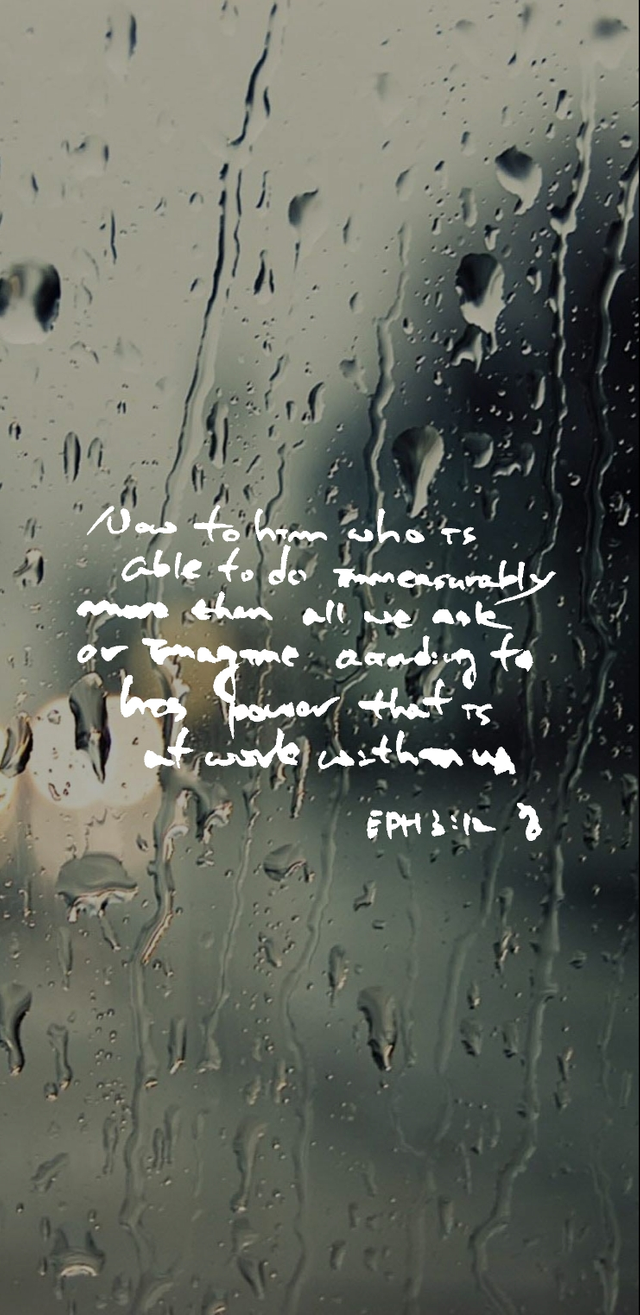 Now to him who is
able to do immeasurably
more than all we ask
or imagine according to
his power that is
at work within us
EPH 3:12